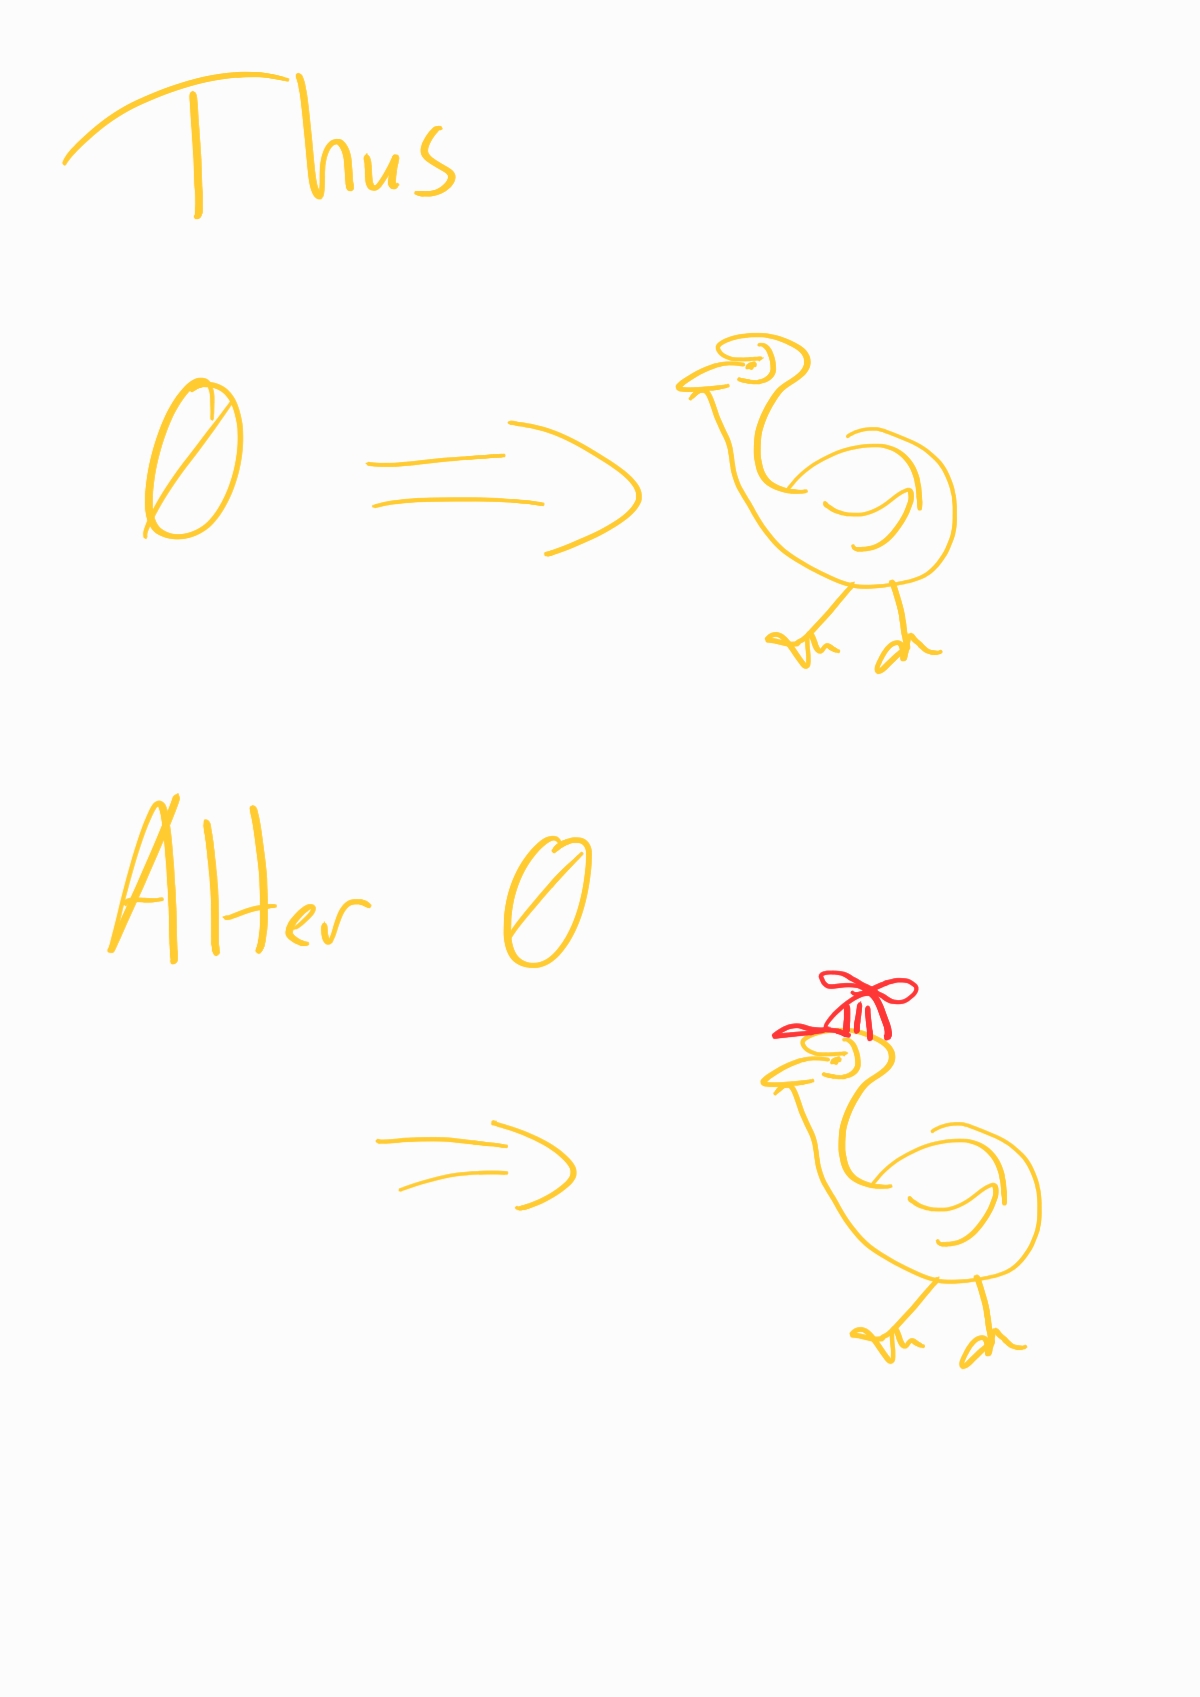 Thus
∅ ⇒
Alter ∅
⇒